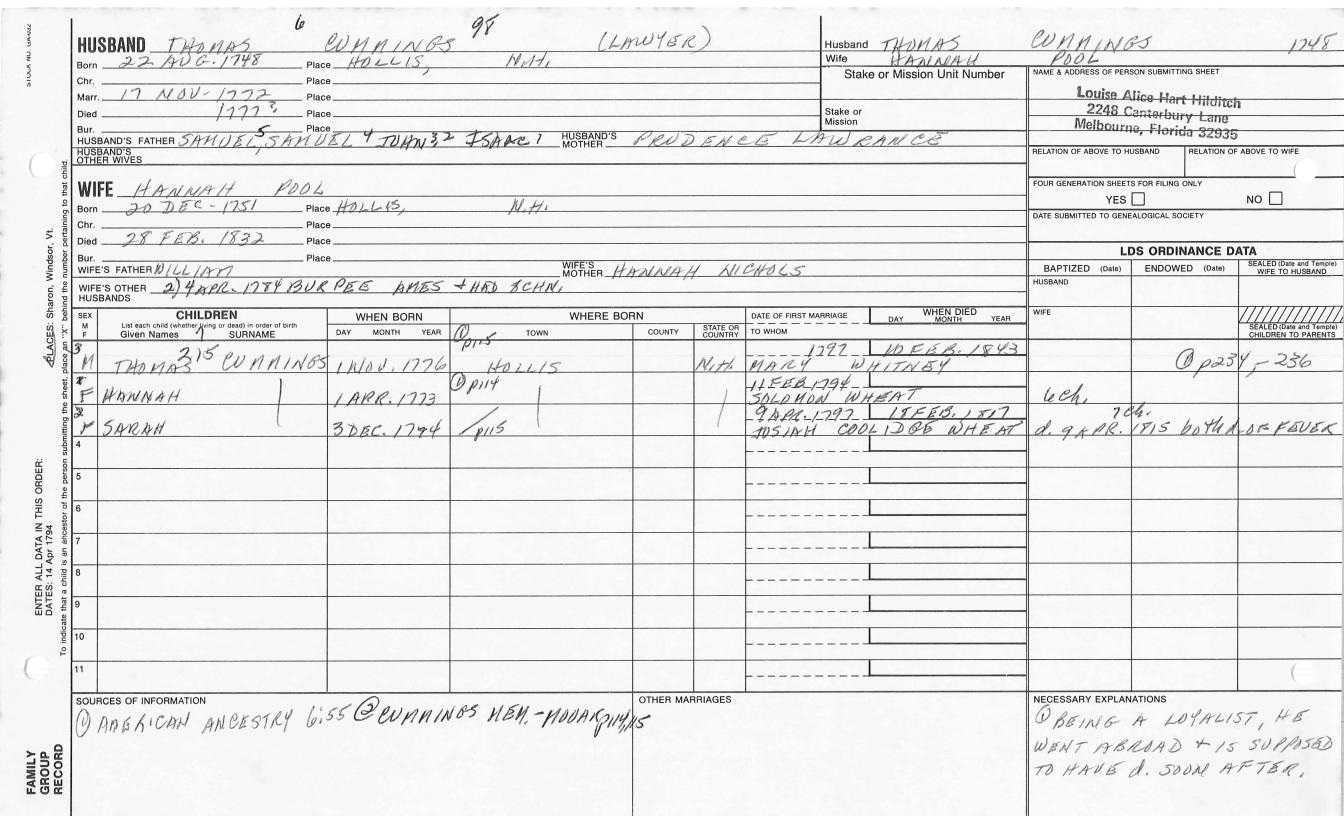 STOCK NO.
6 98
HUSBAND THOMAS CUMMINGS (LAWYER)
Born 22 AUG. 1748 Place HOLLIS, N.H.
Chr. Place
Marr. 17 NOV- 1772 Place
Died 1777? Place
Bur. Place
HUSBAND'S FATHER SAMUEL,5 SAMUEL 4 JOHN,3,2 ISAAC 1 HUSBAND'S MOTHER PRUDENCE LAWRANCE
HUSBAND'S OTHER WIVES
WIFE HANNAH POOL
Born 20 DEC - 1751 Place HOLLIS, N.H.
Chr. Place
Died 28 FEB. 1832 Place
Bur. Place
WIFE'S FATHER WILLIAM WIFE'S MOTHER HANNAH NICHOLS
WIFE'S OTHER HUSBANDS 2) 4 APR. 1784 BURPEE AMES + HAD 5CHN.
Husband THOMAS CUMMINGS 1748
Wife HANNAH POOL
Stake or Mission Unit Number
Stake or
Mission
NAME & ADDRESS OF PERSON SUBMITTING SHEET
Louise Alice Hart Hilditch
2248 Canterbury Lane
Melbourne, Florida 32935
RELATION OF ABOVE TO HUSBAND RELATION OF ABOVE TO WIFE
FOUR GENERATION SHEETS FOR FILING ONLY
YES NO
DATE SUBMITTED TO GENEALOGICAL SOCIETY
LDS ORDINANCE DATA
BAPTIZED (Date) ENDOWED (Date) SEALED (Date and Temple) WIFE TO HUSBAND
HUSBAND
WIFE
SEALED (Date and Temple) CHILDREN TO PARENTS
SEX M F
CHILDREN
List each child (whether living or dead) in order of birth
Given Names 7 SURNAME
WHEN BORN
DAY MONTH YEAR
WHERE BORN
TOWN COUNTY STATE OR COUNTRY
DATE OF FIRST MARRIAGE
TO WHOM
WHEN DIED
DAY MONTH YEAR
3 M THOMAS 215 CUMMINGS 1 NOV. 1776 ① p115 HOLLIS N.H. 1797 10 FEB. 1843 MARY WHITNEY ① p234,-236
1 F HANNAH 1 APR. 1773 ① p114 11 FEB 1794 SOLOMON WHEAT 6 ch.
2 F SARAH 3 DEC. 1794 p115 9 APR. 1797 18 FEB. 1817 JOSIAH COOLIDGE WHEAT 7 ch. d. 9 APR. 1815 both d. OF FEVER
4
5
6
7
8
9
10
11
SOURCES OF INFORMATION
① AMERICAN ANCESTRY 6:55 ② CUMMINGS MEM. - MOOAR p114,115
OTHER MARRIAGES
NECESSARY EXPLANATIONS
① BEING A LOYALIST, HE
WENT ABROAD + IS SUPPOSED
TO HAVE d. SOON AFTER.
PLACES: Sharon, Windsor, Vt.
ENTER ALL DATA IN THIS ORDER:
DATES: 14 Apr 1794
To indicate that a child is an ancestor of the person submitting the sheet, place an "X" behind the number pertaining to that child.
FAMILY
GROUP
RECORD